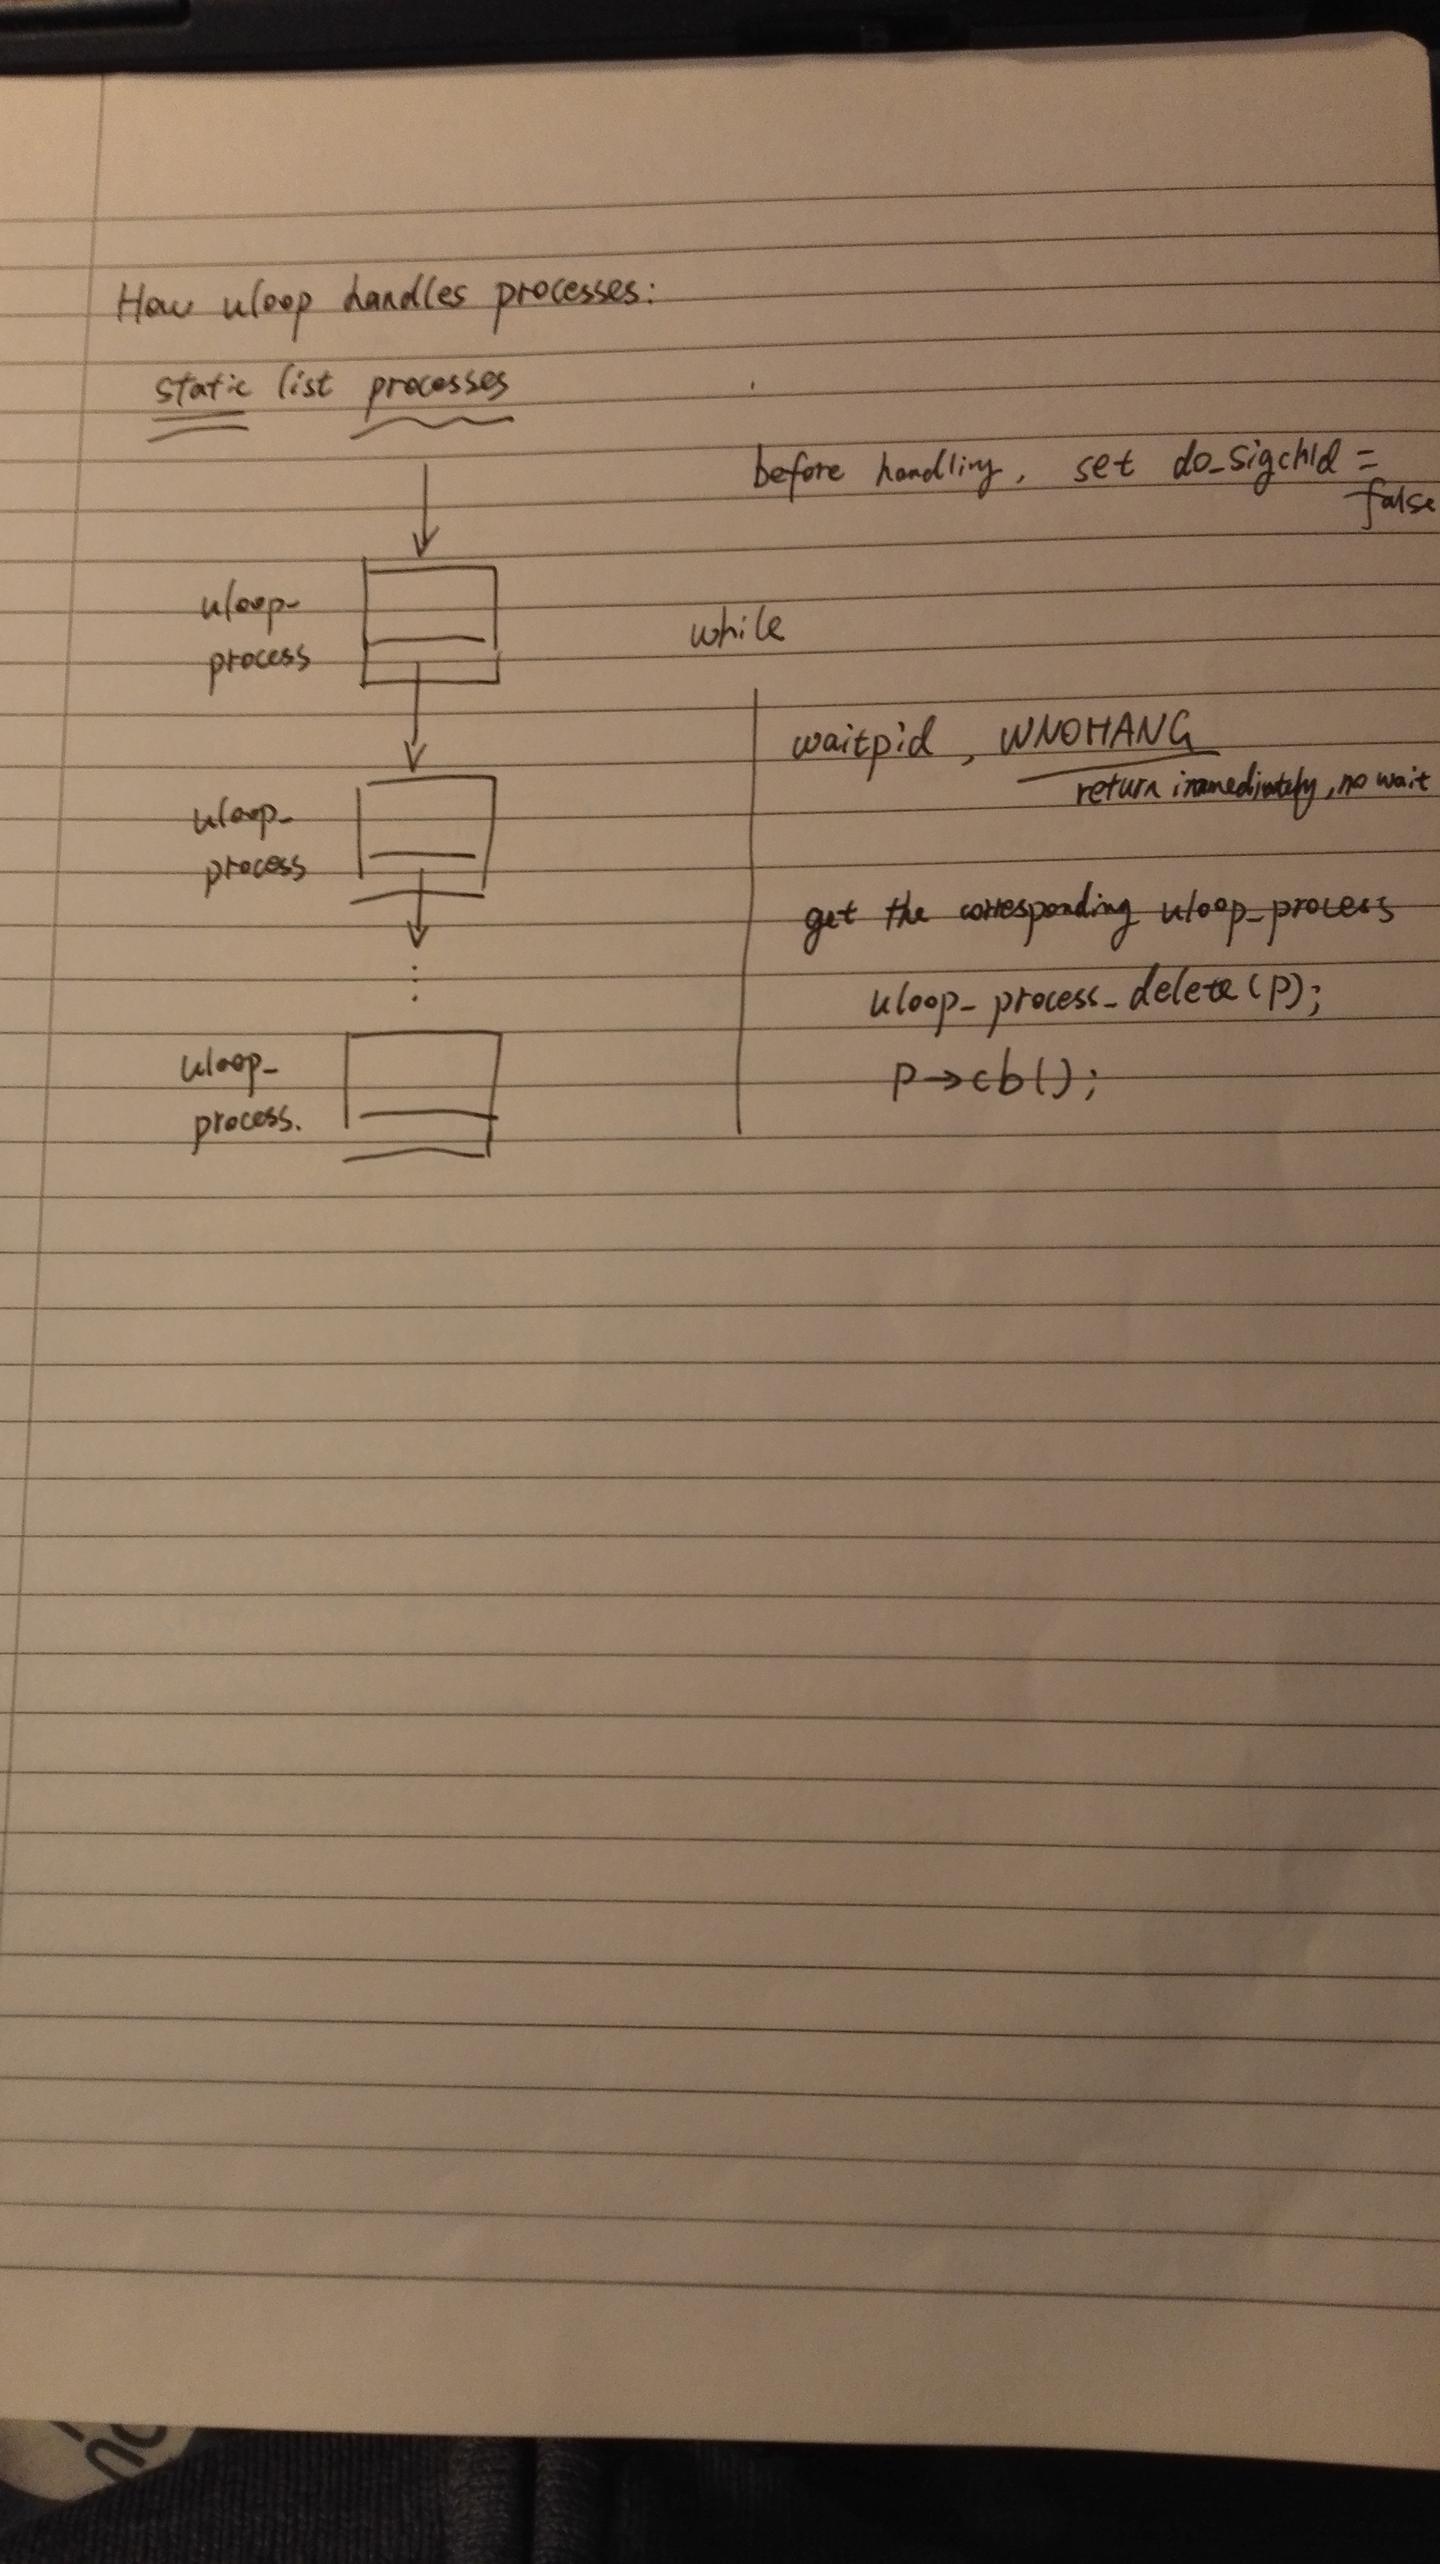 How uloop handles processes:
static list processes
before handling, set do_sigchld =
false
uloop_
process
while
waitpid, WNOHANG
return immediately, no wait
uloop_
process
get the corresponding uloop_process
uloop_process_delete(p);
p→cb();
uloop_
process.